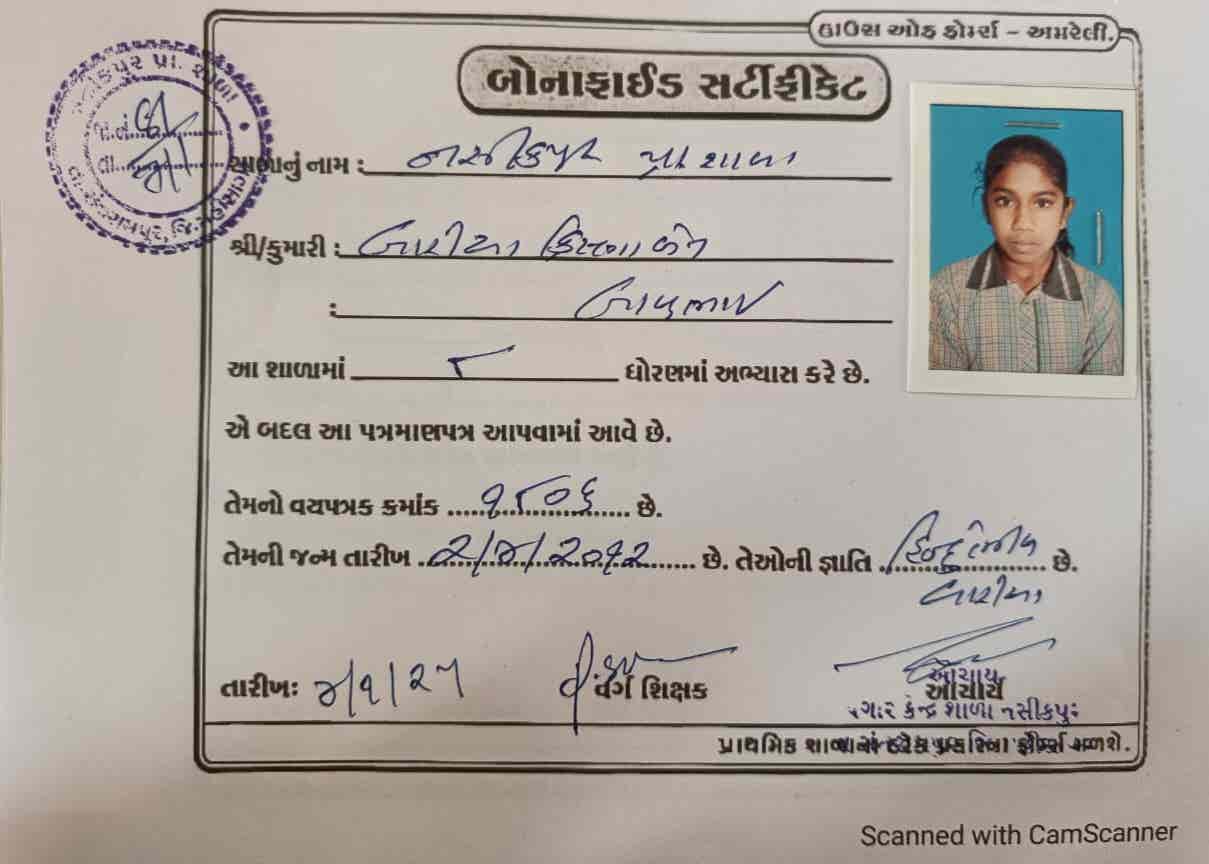 હાઉસ ઓફ ફોર્મ્સ – અમરેલી.
બોનાફાઈડ સર્ટીફીકેટ
પ્રા. શાળા
જા.નં.
તા.
શાળાનું નામ : નસીકપુર પ્રા શાળા
શ્રી/કુમારી : બારીયા ક્રિષ્નાબેન
:
આ શાળામાં ૮ ધોરણમાં અભ્યાસ કરે છે.
એ બદલ આ પત્રમાણપત્ર આપવામાં આવે છે.
તેમનો વયપત્રક કમાંક ૧૮૦૬ છે.
તેમની જન્મ તારીખ ૨/૪/૨૦૧૨ છે. તેઓની જ્ઞાતિ હિન્દુ છે.
બારીયા
તારીખઃ ૪/૧/૨૫ વર્ગ શિક્ષક આચાર્ય
આચાર્ય
કેન્દ્ર શાળા નસીકપુર
પ્રાથમિક શાળાનાં દરેક પ્રકારના ફોર્મ્સ મળશે.
Scanned with CamScanner